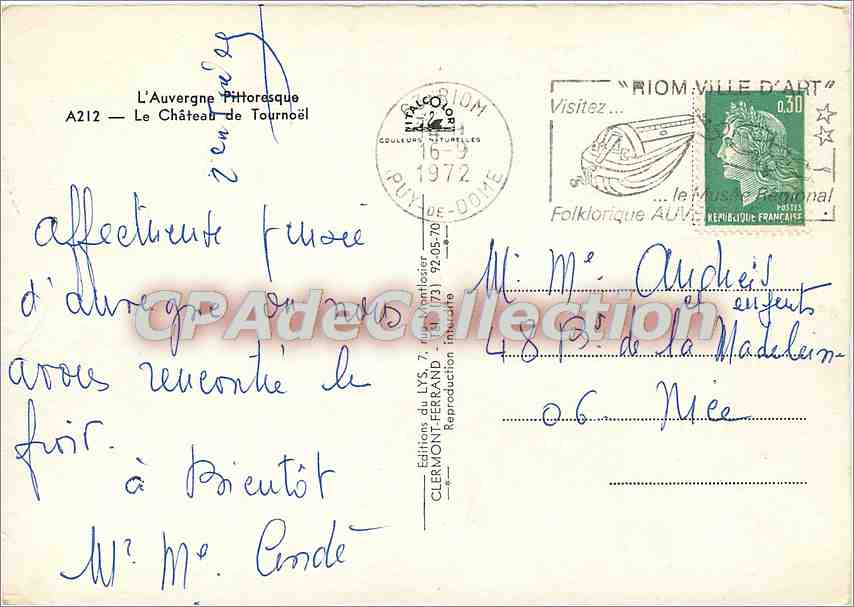 L'Auvergne Pittoresque
A212 — Le Château de Tournoël
affectueuse pensée
d'auvergne ou nous
avons rencontré le
froit.
à Bientôt
Mr Me Condé
ITALCOLOR
COULEURS NATURELLES
RIOM
16-9
1972
PUY-DE-DOME
"RIOM VILLE D'ART"
Visitez...
... le Musée Régional
Folklorique AUV
0,30
POSTES
REPUBLIQUE FRANÇAISE
Editions du LYS, 7, rue Montlosier
CLERMONT-FERRAND - Tél. (73) 92-05-70
Reproduction interdite
Mr Me Andreis
et enfants
48 Bs de la Madelein
06. Nice
CPAdeCollection